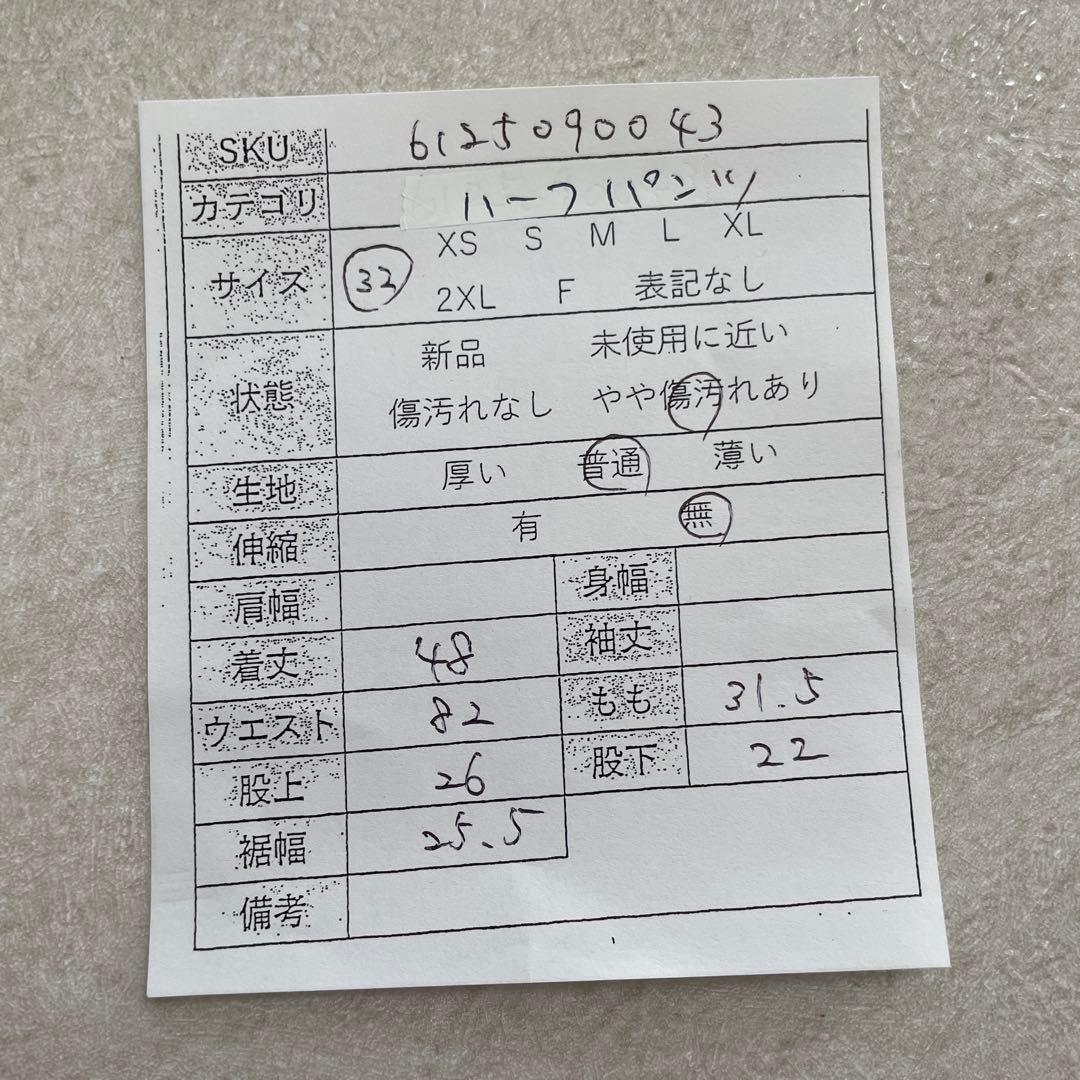 SKU 6125090043
カテゴリ ハーフパンツ
XS S M L XL
サイズ 32
2XL F 表記なし
新品 未使用に近い
状態
傷汚れなし やや傷汚れあり
生地 厚い 普通 薄い
伸縮 有 無
肩幅 身幅
着丈 48 袖丈
ウエスト 82 もも 31.5
股上 26 股下 22
裾幅 25.5
備考